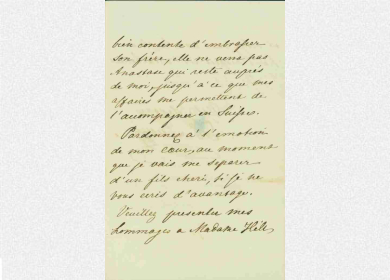 bien contente d'embrasser
son frére, elle ne verra pas
Anastase qui reste auprés
de moi, jusqu'à ce que mes
affaires me permettent de
l'accompagner en Suisse.
Pardonnez à l'emotion
de mon cœur, au moment
que je vais me separer
d'un fils cheri, si je ne
vous ecris d'avantage.
Veuillez presenter mes
hommages a Madame